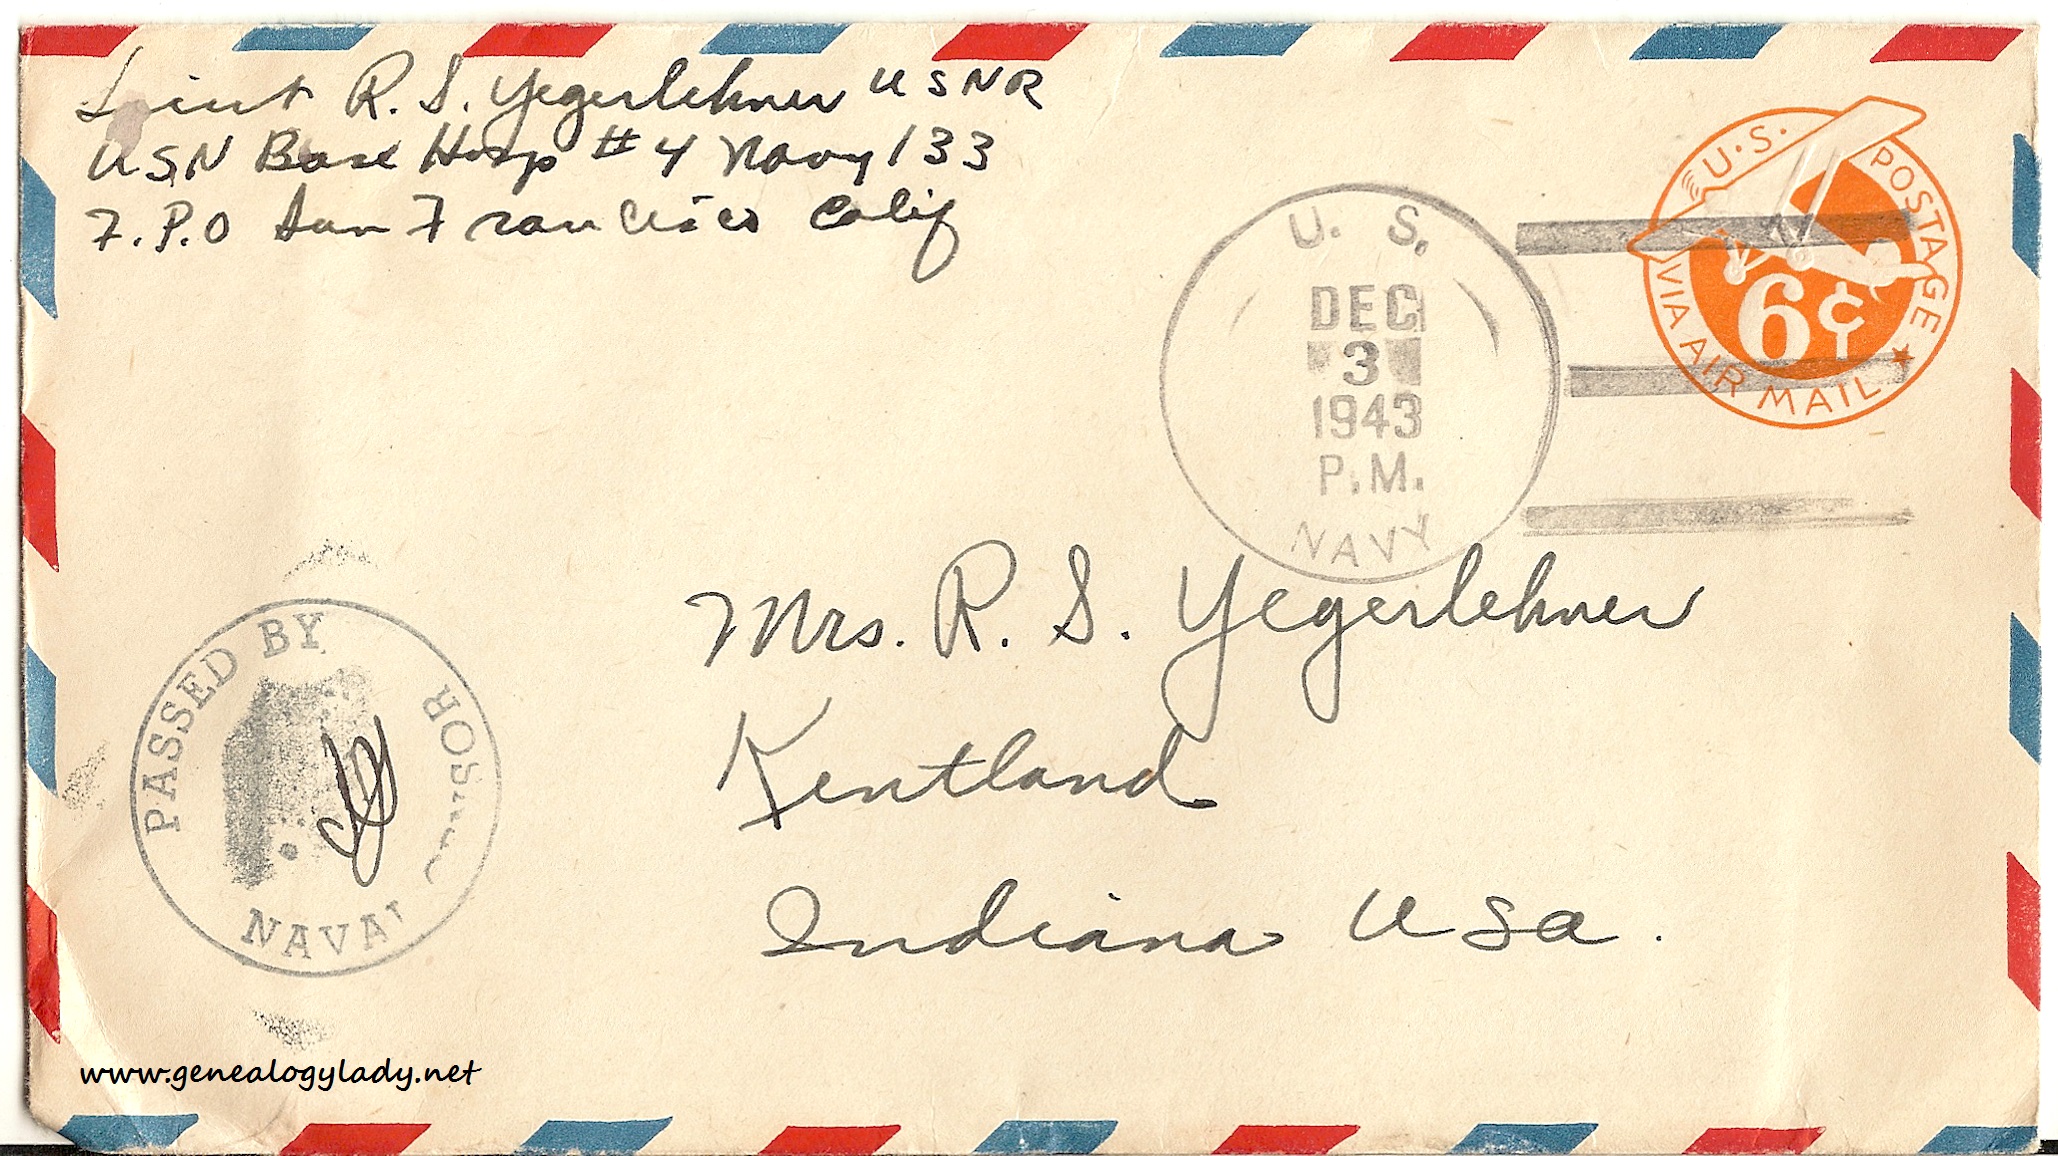 Lieut R. S. Yegerlehner USNR
USN Base Hosp #4 Navy 133
F.P.O San Francisco Calif
U.S. POSTAGE
6¢
VIA AIR MAIL
U. S.
DEC
3
1943
P.M.
NAVY
Mrs. R. S. Yegerlehner
Kentland
Indiana USA.
PASSED BY
NAVAL
www.genealogylady.net